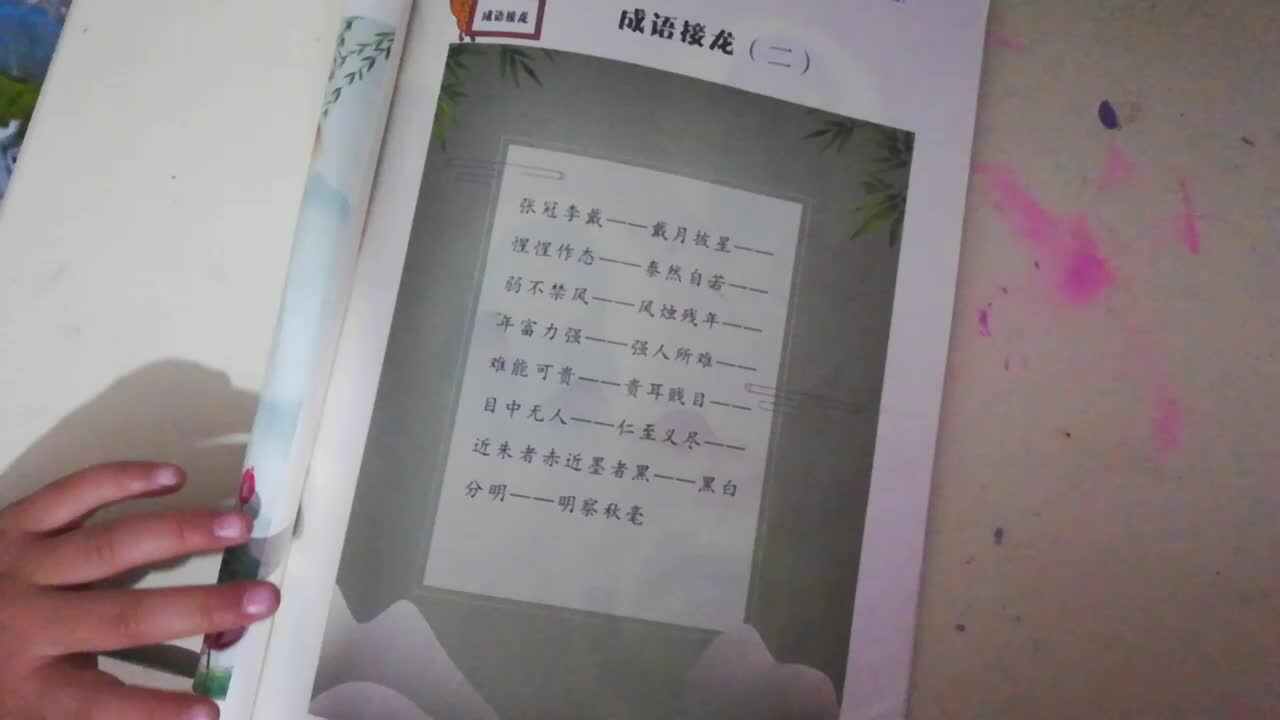 成语接龙
成语接龙（二）
张冠李戴——戴月披星——
惺惺作态——泰然自若——
弱不禁风——风烛残年——
年富力强——强人所难——
难能可贵——贵耳贱目——
目中无人——仁至义尽——
近朱者赤近墨者黑——黑白
分明——明察秋毫